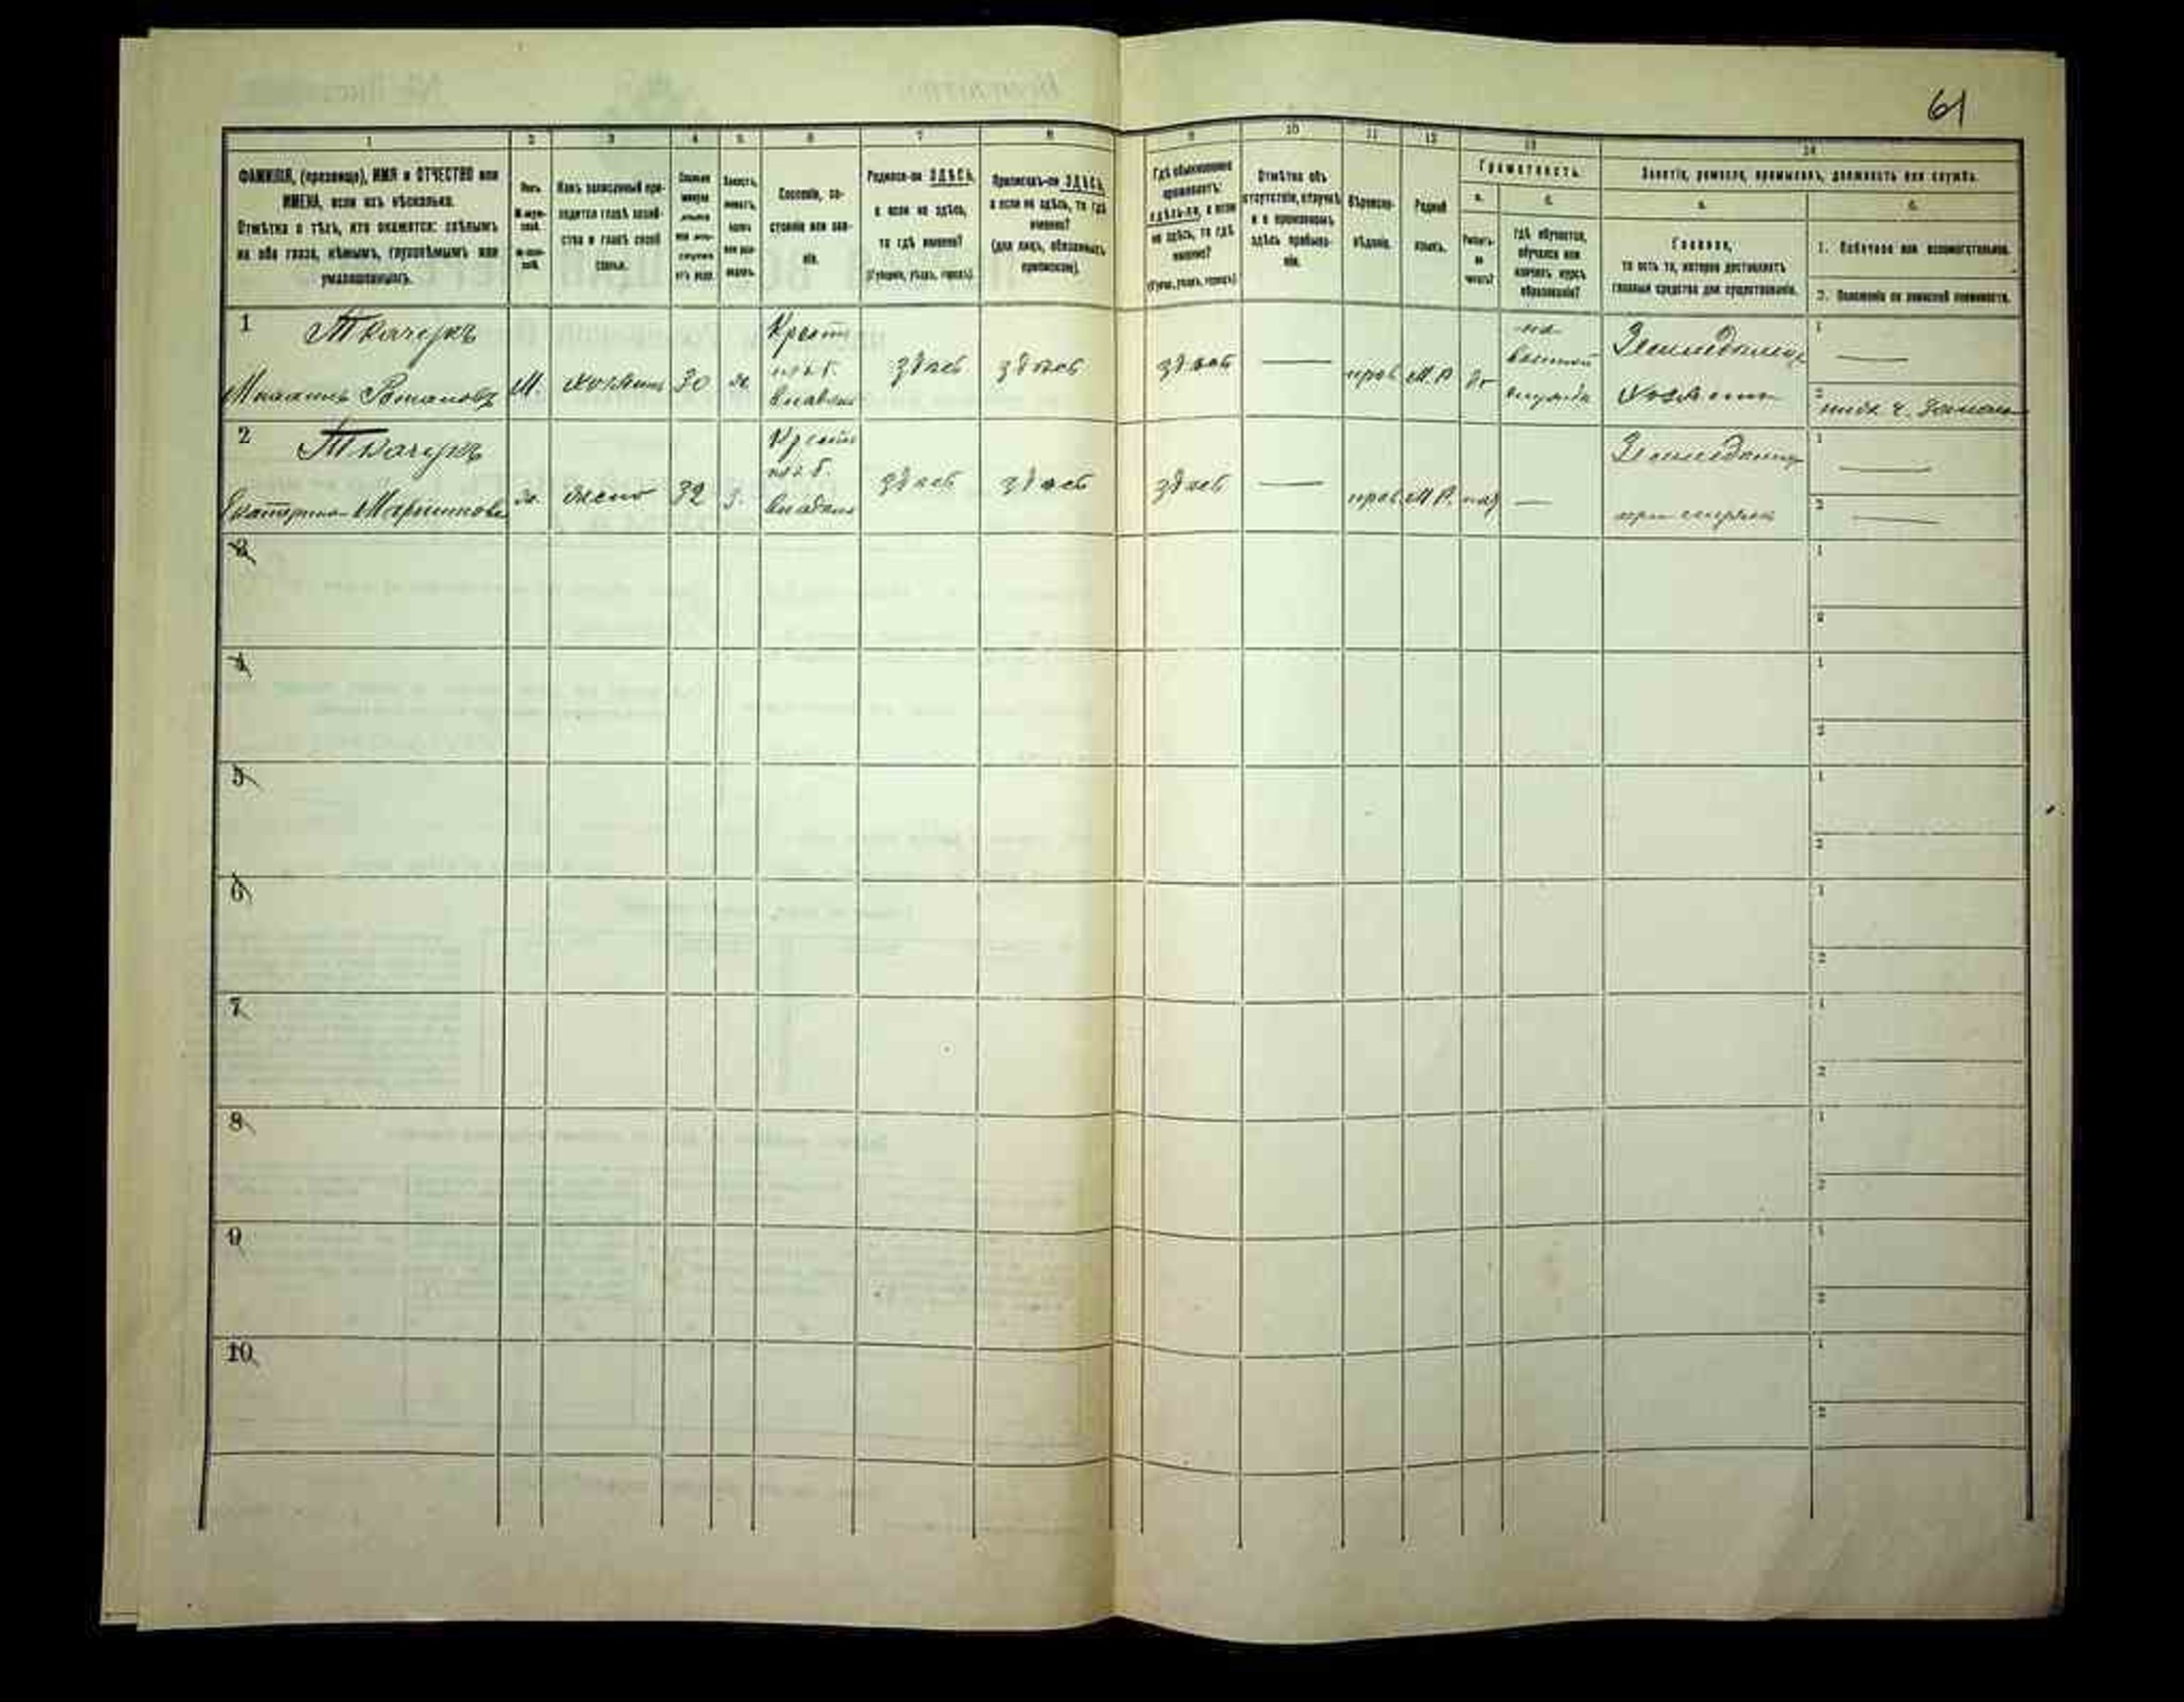 61
1 2 3 4 5 6 7 8 9 10 11 12 13 14
ФАМИЛІЯ, (прозвище), ИМЯ и ОТЧЕСТВО или
ИМЕНА, если ихъ нѣсколько.
Отмѣтка о тѣхъ, кто окажется: слѣпымъ
на оба глаза, нѣмымъ, глухонѣмымъ или
умалишеннымъ.
Какъ записанный при-
ходится главѣ хозяй-
ства и главѣ своей
семьи.
Сословіе, со-
стояніе или зва-
ніе.
Родился-ли ЗДѢСЬ,
а если не здѣсь,
то гдѣ именно?
(Губернія, уѣздъ, городъ).
Приписанъ-ли ЗДѢСЬ,
а если не здѣсь, то гдѣ
именно?
(для лицъ, обязанныхъ
припискою).
Гдѣ обыкновенно
проживаетъ:
здѣсь-ли, а если
не здѣсь, то гдѣ
именно?
(Губ., уѣздъ, городъ)
Отмѣтка объ
отсутствіи, отлучкѣ
и о временномъ
здѣсь пребыва-
ніи.
Вѣроиспо-
вѣданіе.
Родной
языкъ.
Грамотность.
а. б.
Умѣетъ-
ли
читать?
Гдѣ обучается,
обучался или
кончилъ курсъ
образованія?
Занятіе, ремесло, промыселъ, должность или служба.
а. б.
Главное,
то есть то, которое доставляетъ
главныя средства для существованія.
1. Побочное или вспомогательное.
2. Положеніе по воинской повинности.
1 Ткачукъ
Михаилъ Романовъ
М. хозяинъ 30 ж.
Крест
изъ б.
владѣл
здѣсь здѣсь здѣсь — прав М.Р да
на
военной
службѣ
Земледѣлецъ
хозяинъ
1 —
2
2 Ткачукъ
Екатерина
ж. жена 32 з.
Крест
изъ б.
владѣл
здѣсь здѣсь здѣсь — прав М.Р. —
Земледѣлецъ
при мужѣ
1 —
2 —
3 1
2
4 1
2
5 1
2
6 1
2
7 1
2
8 1
2
9 1
2
10 1
2